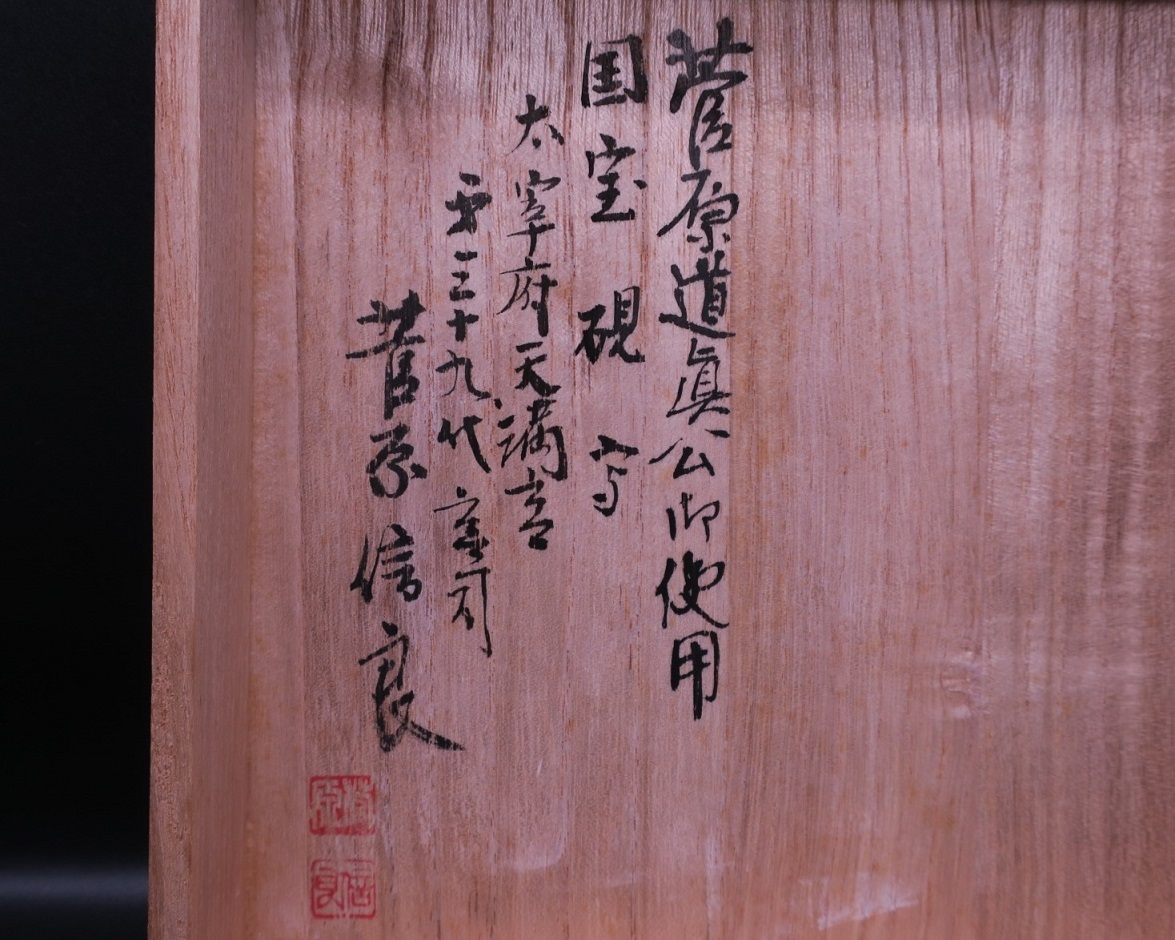 菅原道眞公御使用
国宝硯写
太宰府天満宮
第三十九代宮司
菅原信良
菅原
信良